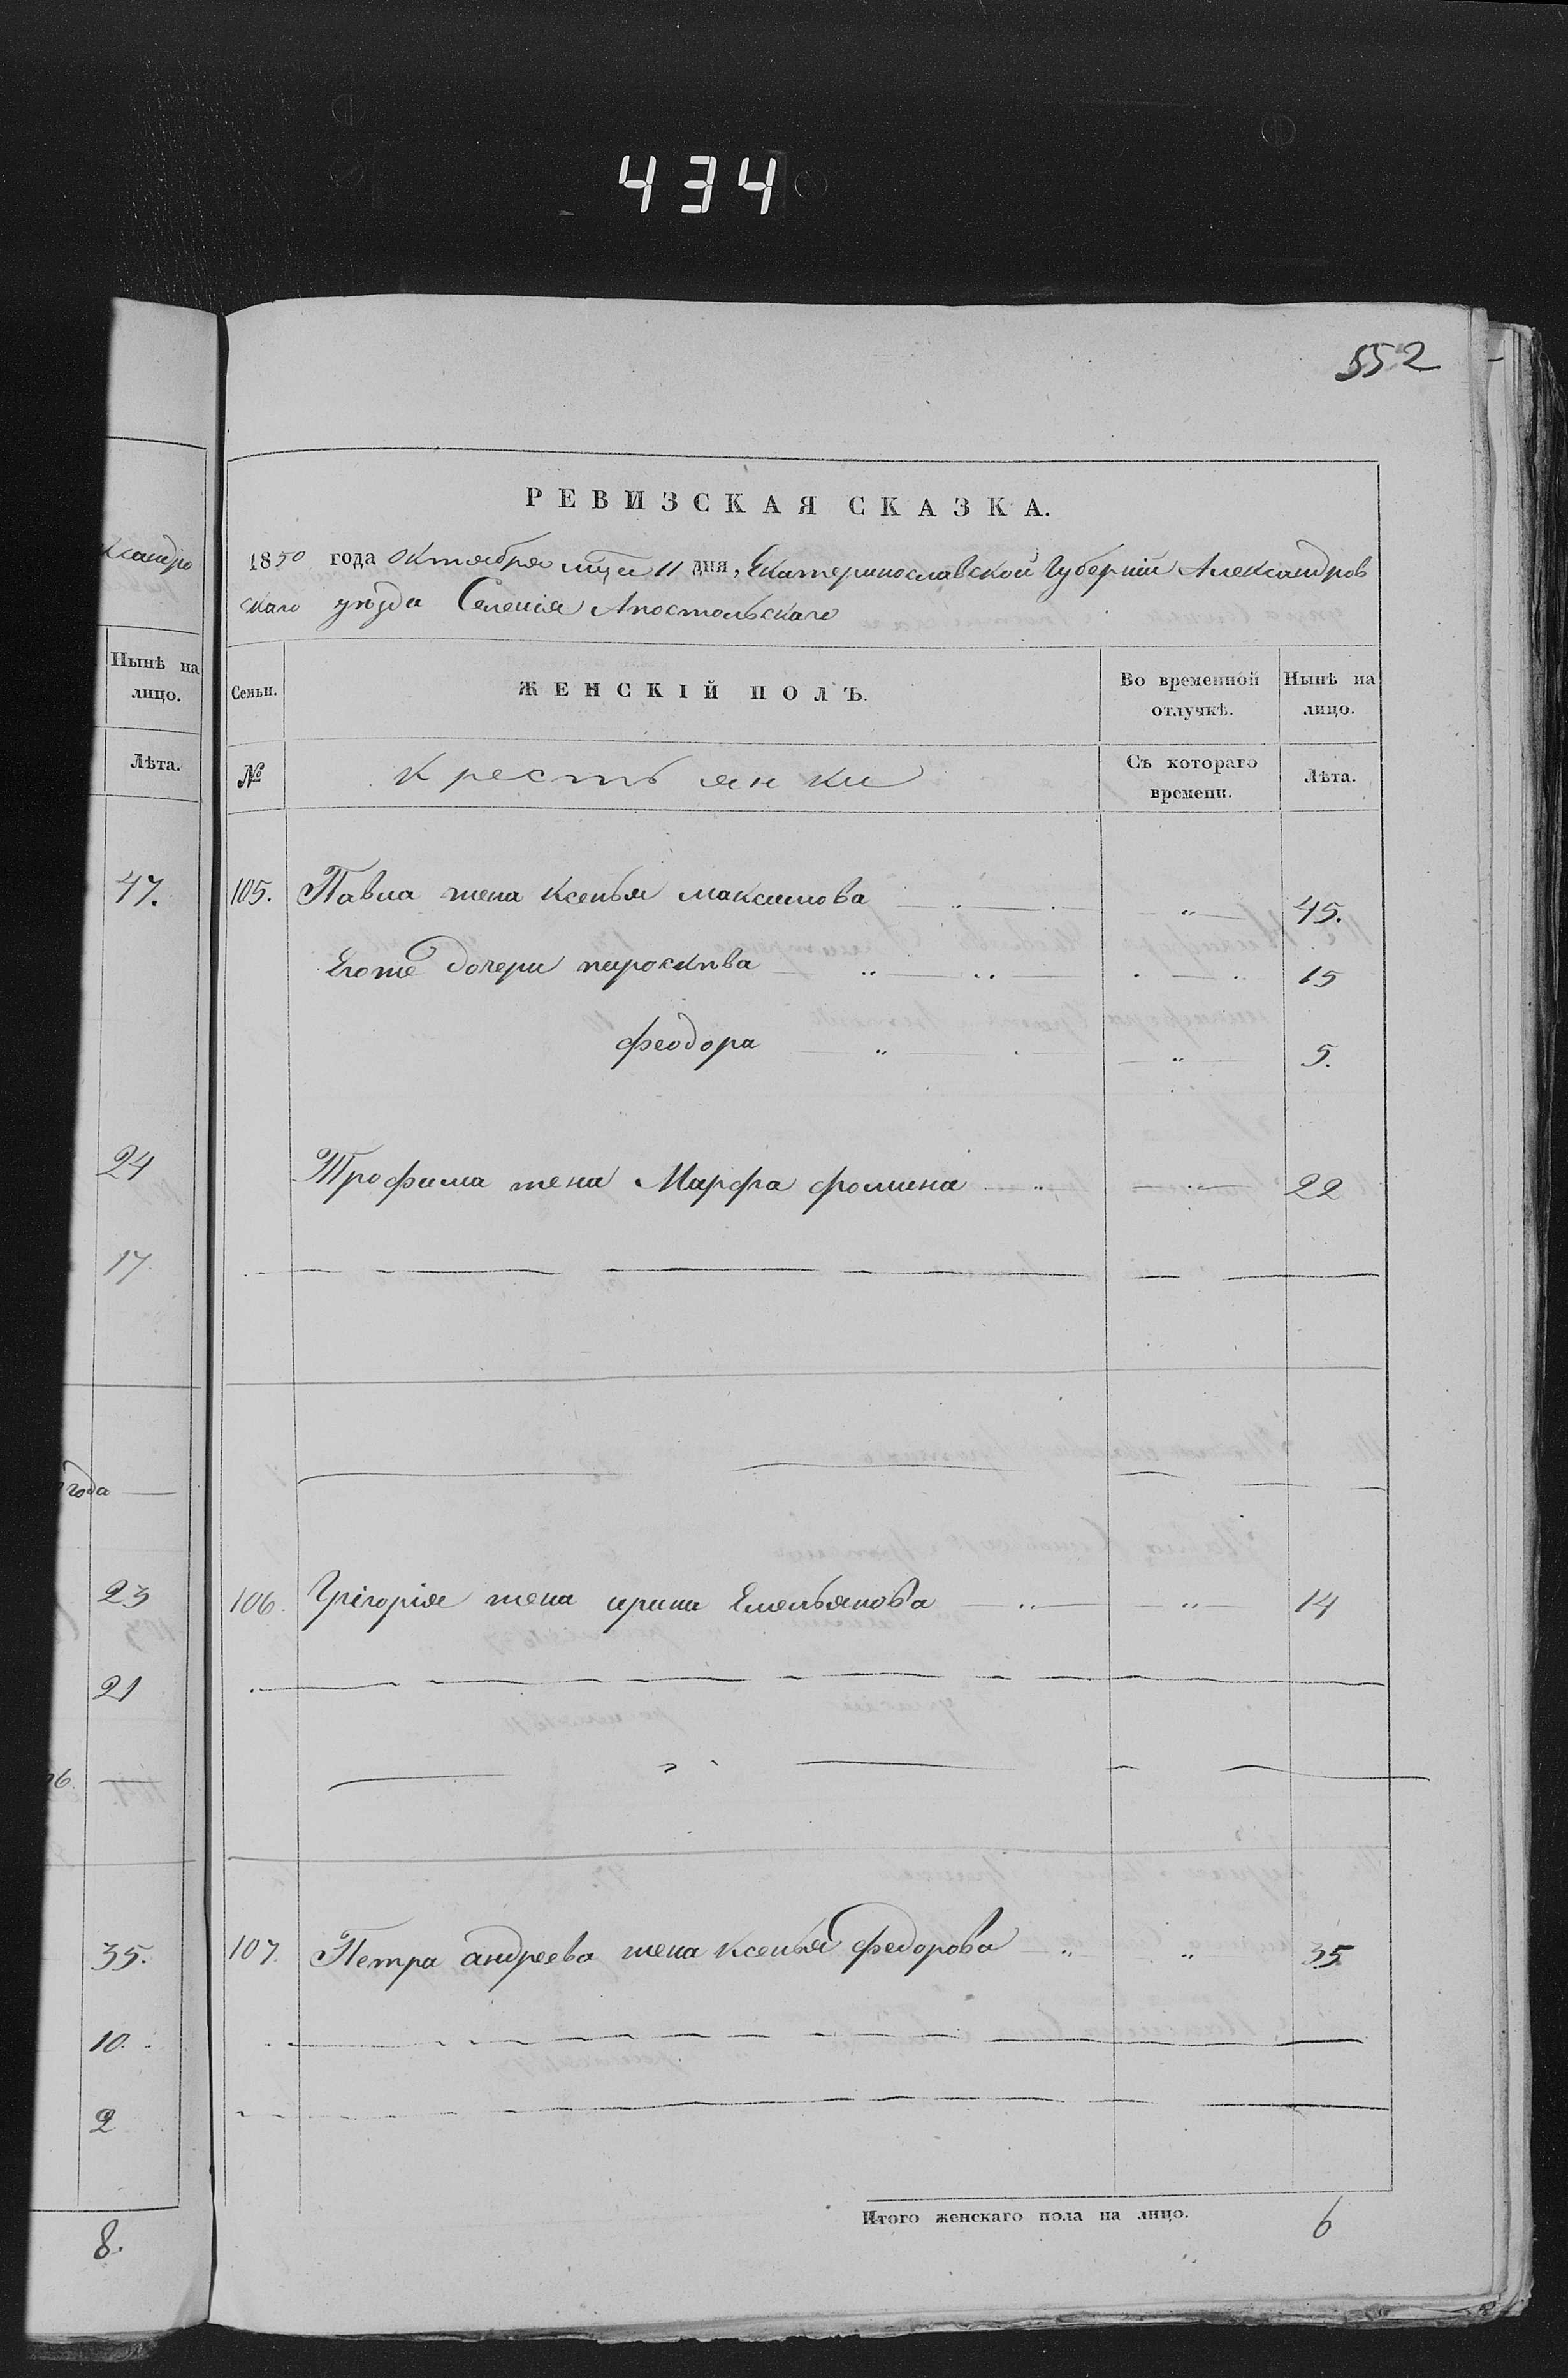 434
552
РЕВИЗСКАЯ СКАЗКА.
1850 года Октября мца 11 дня, Екатеринославской Губерніи Александров
скаго уѣзда Селенія Апостольскаго
Семьи. ЖЕНСКІЙ ПОЛЪ. Во временной отлучкѣ. Нынѣ на лицо.
№ Крестьянки Съ котораго времени. Лѣта.
105. Павла жена Ксенья максимова 45.
Егоже дочери параскѣва 15
феодора 5.
Трофима жена Марфа фомина 22
106. Григорія жена ирина Емельянова 14
107. Петра андреева жена Ксенья федорова 35
Итого женскаго пола на лицо. 6
ксандро
Нынѣ на
лицо.
Лѣта.
47.
24
17
года
23
21
35.
10.
2
8.